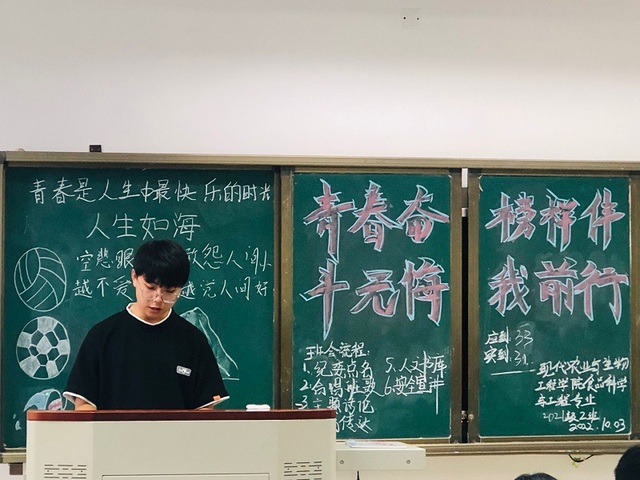 青春是人生中最快乐的时光
人生如海
空悲
怨人间
越不爱
越觉人间好
青春奋
斗无悔
班会流程:
1.班委点名
2.合唱班歌
3.主题讨论
5.人文书库
6.安全
榜样伴
我前行
应到:33
实到:31
现代农业与生物
工程学院食品科学
与工程专业
2021级2班
2022.10.03